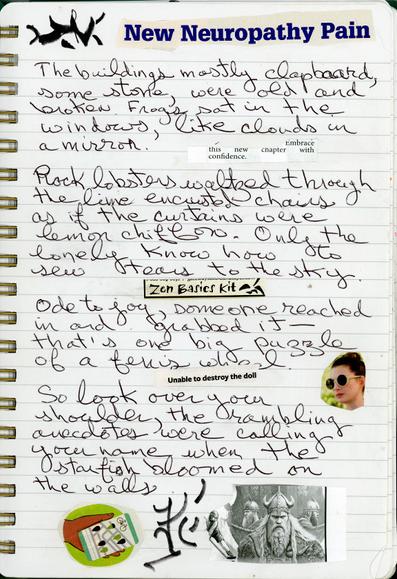 New Neuropathy Pain
The buildings mostly clapboard,
some stone, were old and
broken. Frogs sat in the
windows, like clouds in
a mirror.
Embrace
this new chapter with
confidence.
Rock lobsters waltzed through
the lime encrusted chairs
as if the curtains were
lemon chiffon. Only the
lonely know how to
sew tears to the sky.
Zen Basics Kit
Ode to joy, someone reached
in and grabbed it—
that's one big puzzle
of a ferris wheel.
Unable to destroy the doll
So look over your
shoulder, the rambling
anecdotes were calling
your name when the
starfish bloomed on
the walls